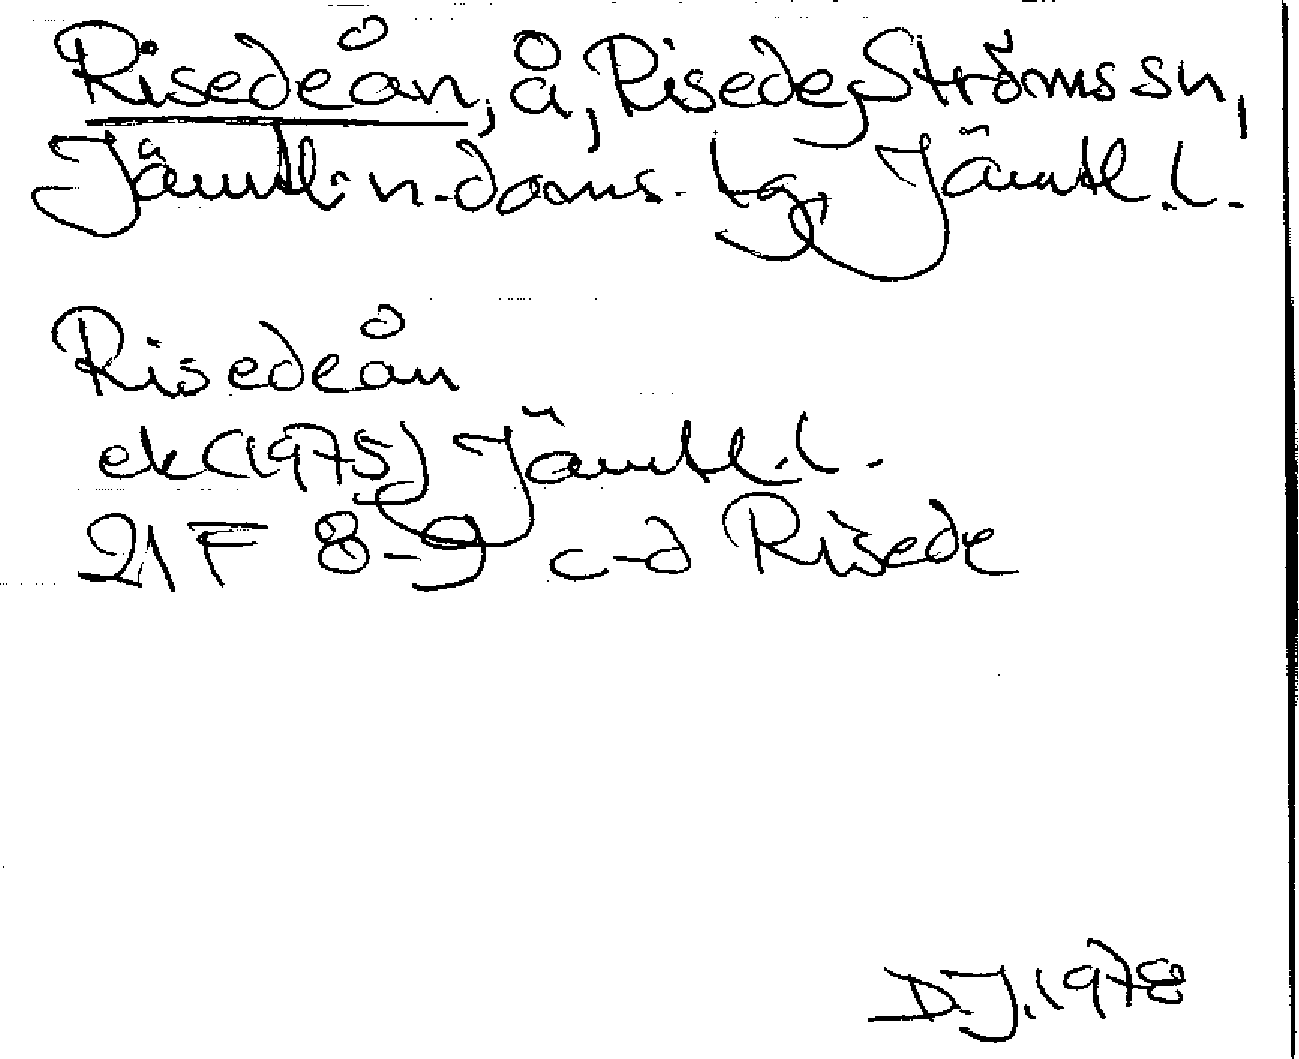 Risedeån, å, Risede, Ströms sn,
Jämtl. n. doms. tg, Jämtl. l.
Risedeån
ek (1975) Jämtl. l.
21 F 8-9 c-d Risede
D.J. 1978